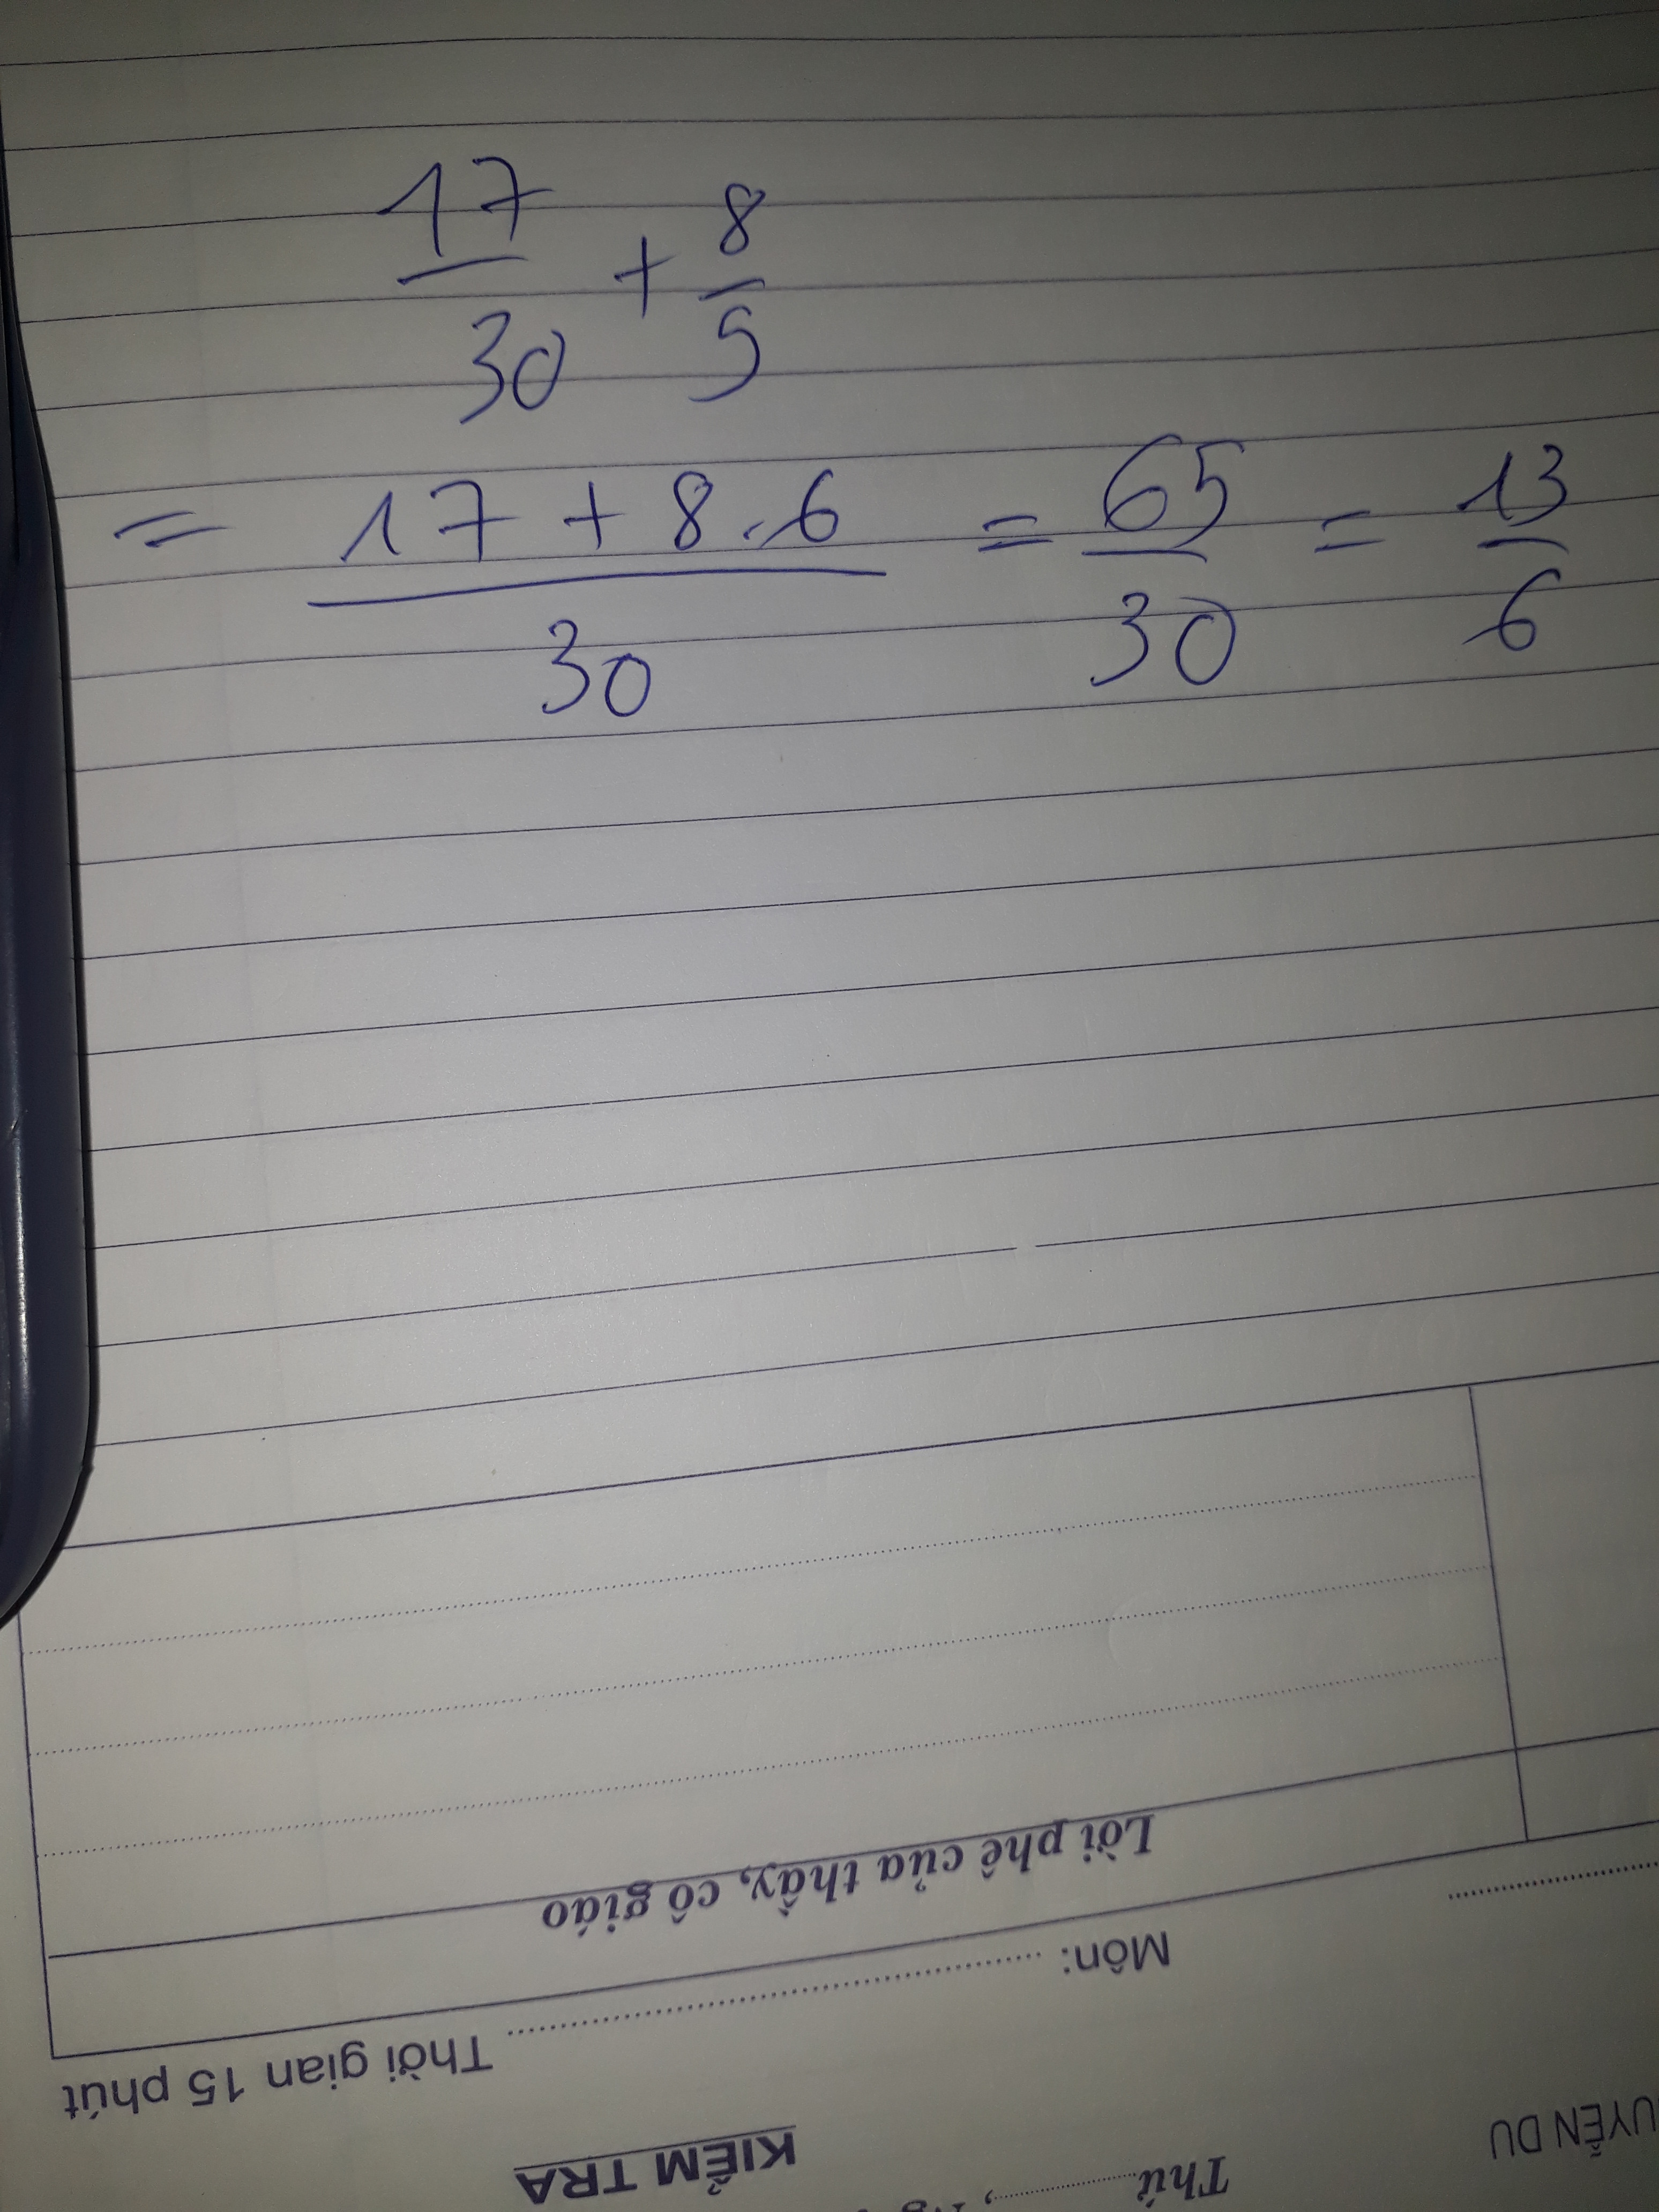 17/30 + 8/5
= (17 + 8.6)/30 = 65/30 = 13/6
Lời phê của thầy, cô giáo
Môn: ........ Thời gian 15 phút
KIỂM TRA
Thứ ........,
UYỄN DU